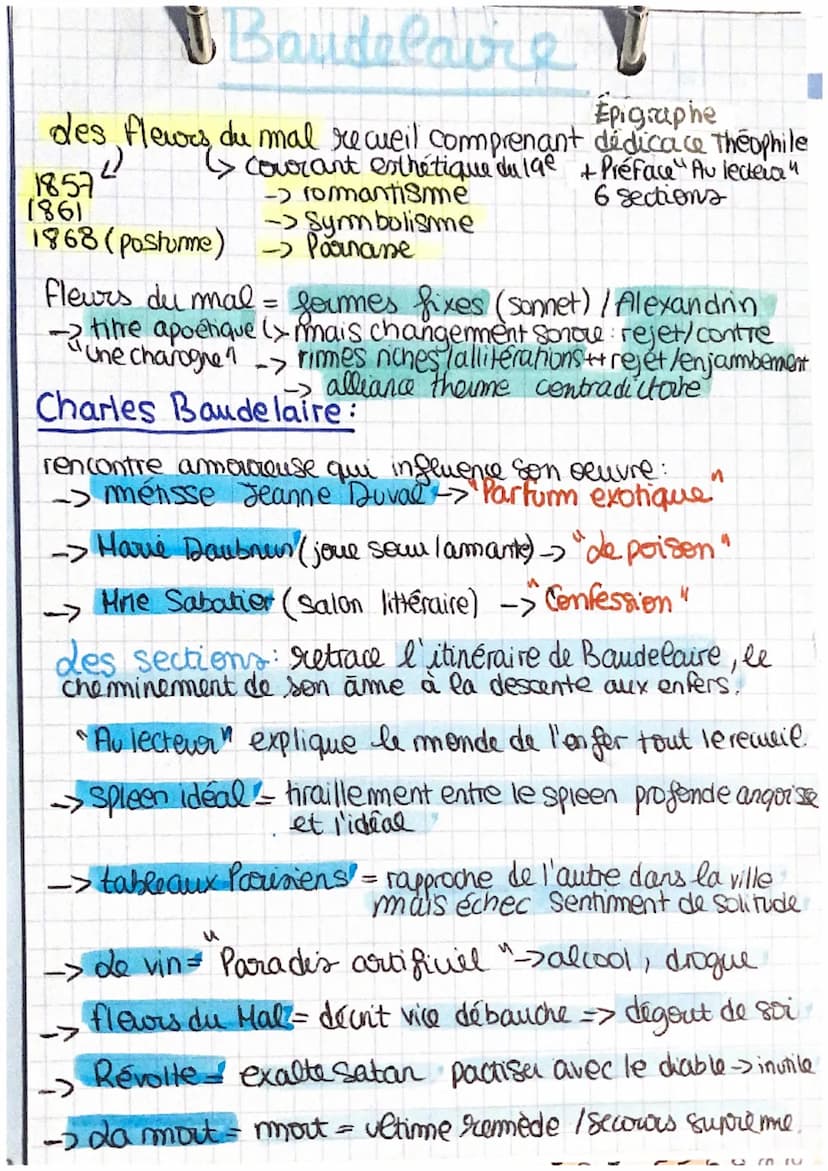 Baudelaire
Épigraphe
des fleurs du mal recueil comprenant dédicace Théophile
↳ courant esthétique du 19e + Préface "Au lecteur"
1857 -> romantisme 6 sections
1861 -> Symbolisme
1868 (postume) -> Parnasse
fleurs du mal = formes fixes (sonnet) / Alexandrin
-> titre apoétique ↳ mais changement sonore : rejet/contre
"une charogne" -> rimes riches/allitérations ↔ rejet/enjambement
-> alliance theume contradictoire
Charles Baudelaire :
rencontre amoureuse qui influence son oeuvre :
-> métisse Jeanne Duval -> "Parfum exotique"
-> Marie Daubrun (joue seuu lamante) -> "de poison"
-> Mme Sabatier (salon littéraire) -> "Confession"
des sections : retrace l'itinéraire de Baudelaire, le
cheminement de son âme à la descente aux enfers.
"Au lecteur" explique le monde de l'enfer tout le recueil.
-> spleen idéal = tiraillement entre le spleen profonde angoisse
et l'idéal
-> tableaux Parisiens = rapproche de l'autre dans la ville
mais échec sentiment de solitude
-> de vin = "Paradis artificiel" -> alcool, drogue
-> fleurs du Mal = décrit vice débauche => dégout de soi
-> Révolte = exalte Satan pactiser avec le diable -> inutile
-> da mort = mort = ultime remède / secours suprême.